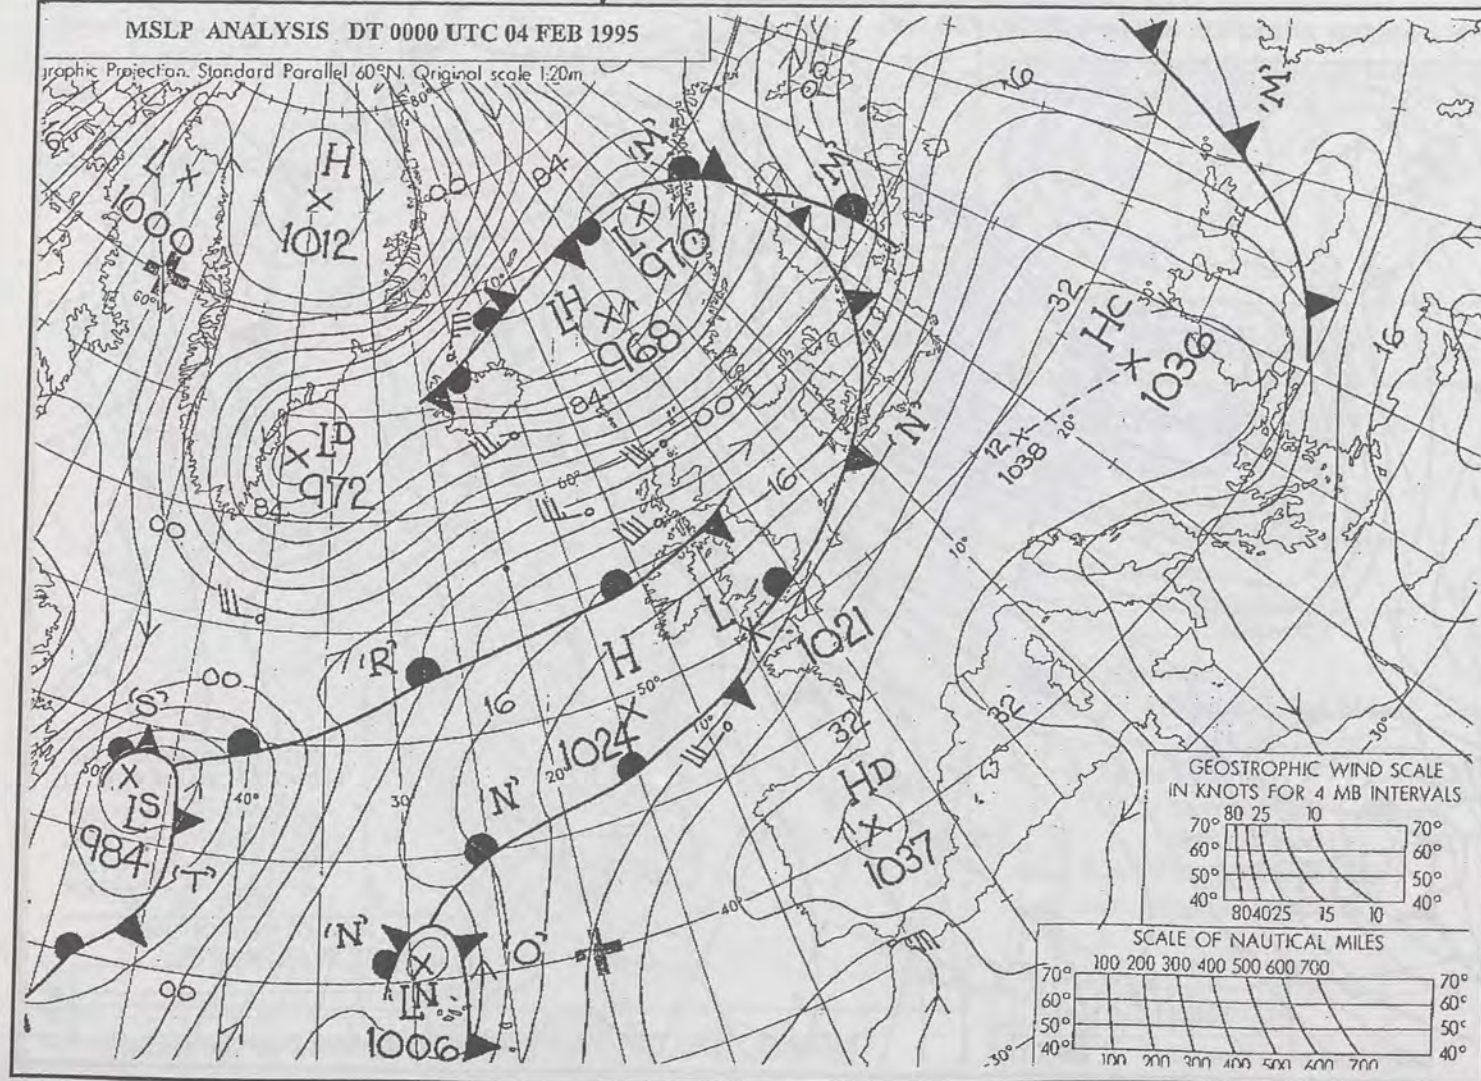 MSLP ANALYSIS DT 0000 UTC 04 FEB 1995
graphic Projection. Standard Parallel 60°N. Original scale 1:20m
80°
L
1000
H
1012
00
84
'M'
'M'
16
'M'
40°
60°W
70°
L
970
LH
968
84
00
32
HC
1036
30°
16
LD
972
84
00
60°
16
'N'
12-X-
1038
20°
10°
'R'
H
1024
50°
L
1021
00
'S'
16
10°
32
32
30°
50°
LS
984
40°
30°
20°
'N'
HD
1037
'T'
'N'
'O'
40°
LN
1006
00
30°
GEOSTROPHIC WIND SCALE
IN KNOTS FOR 4 MB INTERVALS
80 25 10
70° 70°
60° 60°
50° 50°
40° 40°
80 40 25 15 10
SCALE OF NAUTICAL MILES
100 200 300 400 500 600 700
70° 70°
60° 60°
50° 50°
40° 40°
100 200 300 400 500 600 700